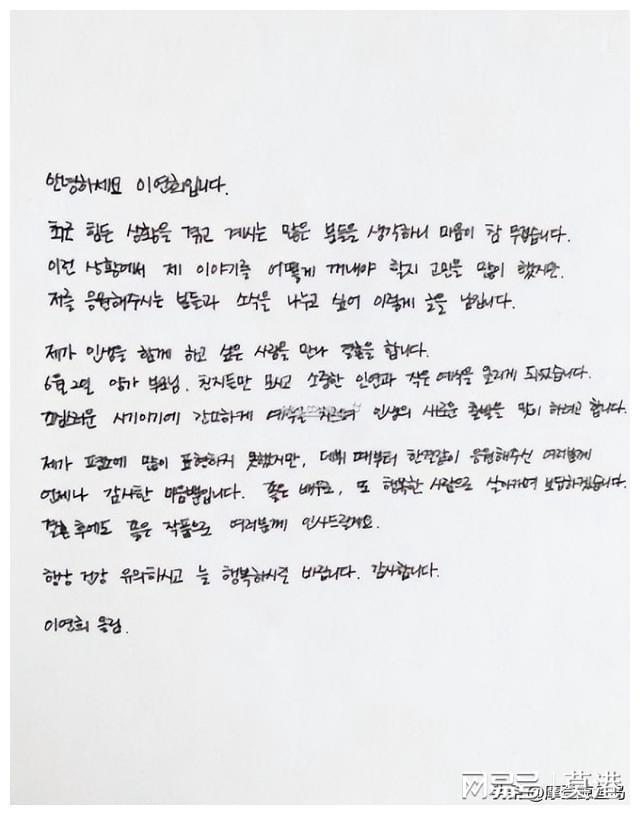 안녕하세요 이연희입니다.
최근 힘든 상황을 겪고 계시는 많은 분들을 생각하니 마음이 참 무겁습니다.
이런 상황에서 제 이야기를 어떻게 꺼내야 할지 고민을 많이 했지만,
저를 응원해주시는 분들과 소식을 나누고 싶어 이렇게 글을 남깁니다.
제가 인생을 함께 하고 싶은 사람을 만나 결혼을 합니다.
6월 2일 양가 부모님, 친지들만 모시고 소중한 인연과 작은 예식을 올리게 되었습니다.
조심스러운 시기이기에 간소하게 예식을 치르며 인생의 새로운 출발을 맞이 하려고 합니다.
제가 표현에 많이 표현하지 못했지만, 데뷔 때부터 한결같이 응원해주신 여러분께
언제나 감사한 마음뿐입니다. 좋은 배우로, 또 행복한 사람으로 살아가며 보답하겠습니다.
결혼 후에도 좋은 작품으로 여러분께 인사드릴게요.
항상 건강 유의하시고 늘 행복하시길 바랍니다. 감사합니다.
이연희 올림.
网易号